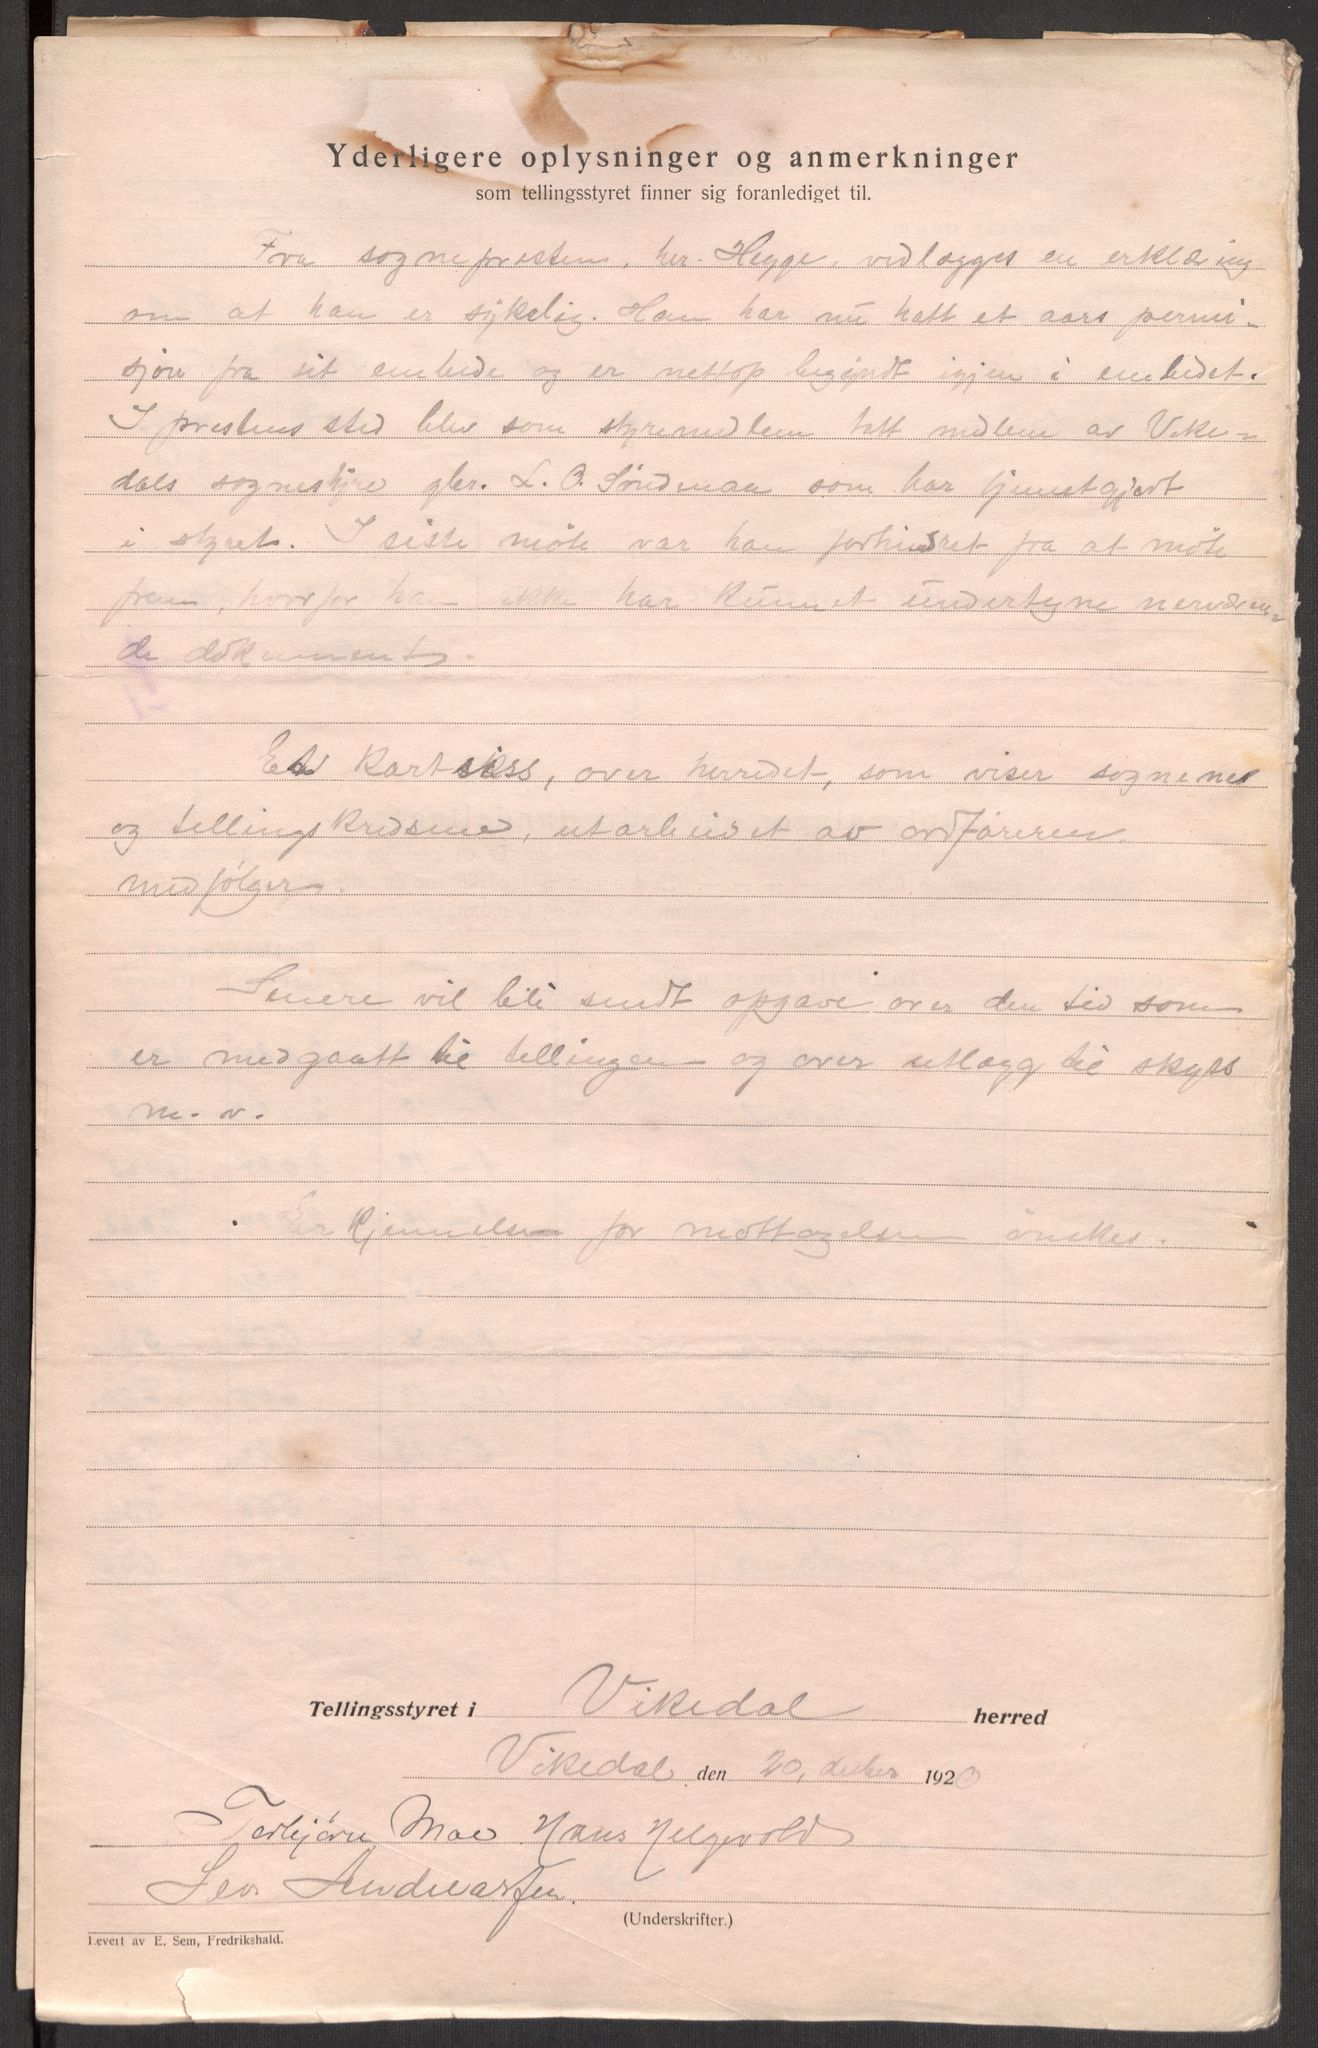 Yderligere oplysninger og anmerkninger
som tellingsstyret finner sig foranlediget til.
Fra sogneprosten, her. Hegge, vedlægges en erklæring
om at han er sykelig. Han har nu hatt et aars permi-
sjon fra sit embede og er nettop begyndt igjen i embedet.
I prestens sted blev som styremedlem tatt medlem av Vike-
dals sognestyre gbr. L. O. Søndenaa som har tjenestgjort
i styret. I siste møte var han forhindret fra at møte
frem, hvorfor han ikke har kunnet undertegne nerværen-
de dokument.
Et kartskiss, over herredet, som viser sognene
og tellingskredsene, utarbeidet av ordføreren
medfølger.
Senere vil bli sendt opgave over den tid som
er medgaatt til tellingen og over utlægg til skyss
m. v.
Erkjennelse for mottagelsen ønskes.
Tellingsstyret i Vikedal herred
Vikedal den 20, decbr 1920
Torbjørn Mæ Hans Helgevold
Sev. Andreassen.
(Underskrifter.)
Levert av E. Sem, Fredrikshald.